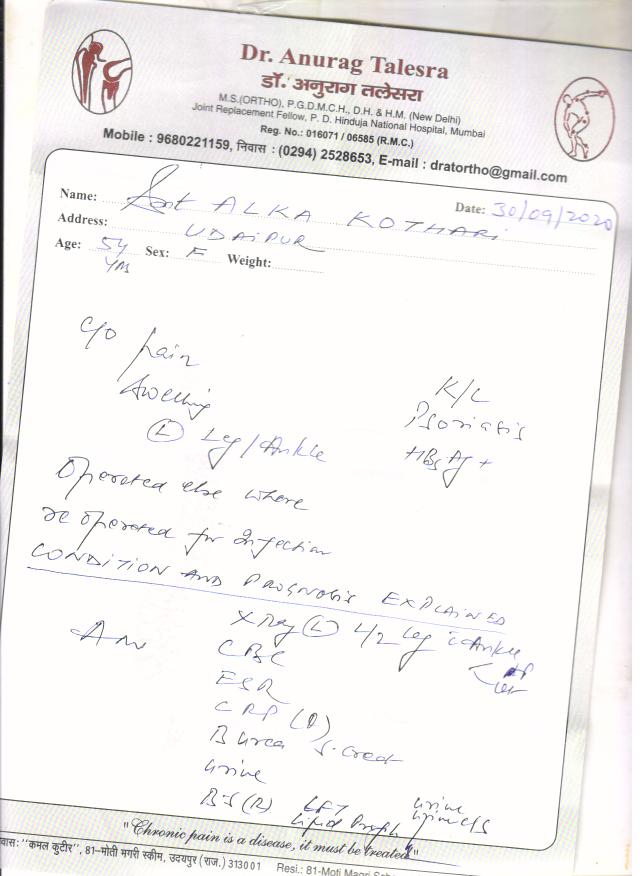 Dr. Anurag Talesra
डॉ. अनुराग तलेसरा
M.S.(ORTHO), P.G.D.M.C.H., D.H. & H.M. (New Delhi)
Joint Replacement Fellow, P. D. Hinduja National Hospital, Mumbai
Reg. No.: 016071 / 06585 (R.M.C.)
Mobile : 9680221159, निवास : (0294) 2528653, E-mail : dratortho@gmail.com
Name: Smt ALKA KOTHARI Date: 30/09/2020
Address: UDAIPUR
Age: 54 Sex: F Weight:
c/o pain
swelling
(L) Leg/Ankle
K/C
Psoriatis
HBsAg +
Operated else where
re operated for Infection
CONDITION AND PROGNOSIS EXPLAINED
X Ray (L) 1/2 Leg c Ankle
AP
CBC
ESR
CRP (Q)
B Urea S. Creat
Urine
B-S (R) LFT Urine
Lipid Profile
"Chronic pain is a disease, it must be treated"
"कमल कुटीर", 81-मोती मगरी स्कीम, उदयपुर (राज.) 313001 Resi.: 81-Moti Magri